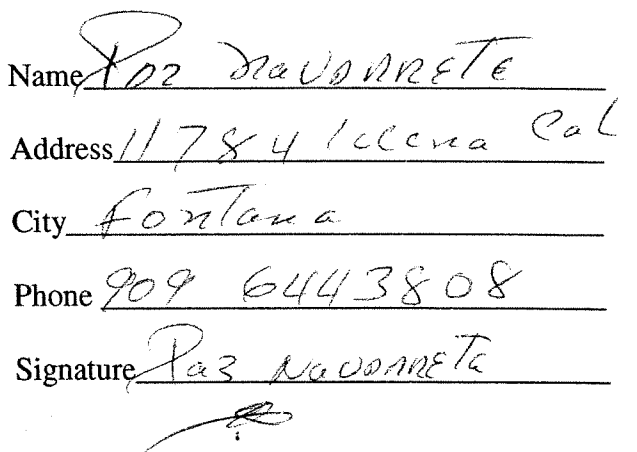 Name Paz Navarrete
Address 11784 Cal
City Fontana
Phone 909 6443808
Signature Paz Navarrete